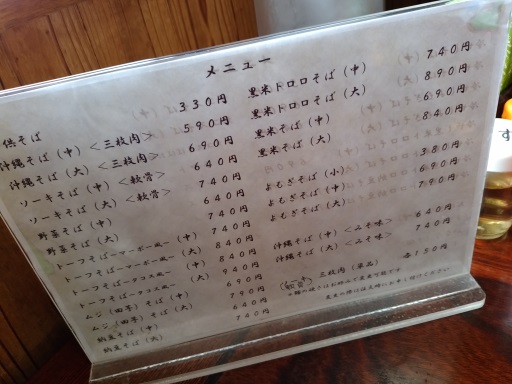 メニュー
供そば 330円
沖縄そば（中）＜三枚肉＞ 590円
沖縄そば（大）＜三枚肉＞ 690円
ソーキそば（中）＜軟骨＞ 640円
ソーキそば（大）＜軟骨＞ 740円
野菜そば（中） 640円
野菜そば（大） 740円
トーフそばーマーボー風ー（中） 740円
トーフそばーマーボー風ー（大） 840円
トーフそばータコス風ー（中） 840円
トーフそばータコス風ー（大） 940円
ムジ（田芋）そば（中） 690円
ムジ（田芋）そば（大） 790円
納豆そば（中） 640円
納豆そば（大） 740円
黒米トロロそば（中） 740円
黒米トロロそば（大） 890円
黒米そば（中） 690円
黒米そば（大） 840円
よもぎそば（小） 380円
よもぎそば（中） 690円
よもぎそば（大） 790円
沖縄そば（中）＜みそ味＞ 640円
沖縄そば（大）＜みそ味＞ 740円
三枚肉（単品） 各150円
す